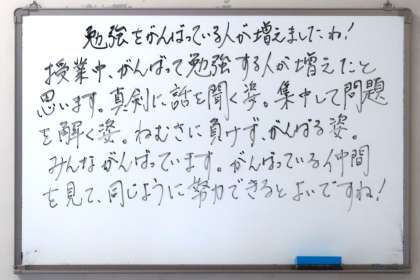 勉強をがんばっている人が増えましたね!
授業中、がんばって勉強する人が増えたと
思います。真剣に話を聞く姿。集中して問題
を解く姿。ねむさに負けず、がんばる姿。
みんながんばっています。がんばっている仲間
を見て、同じように努力できるとよいですね!